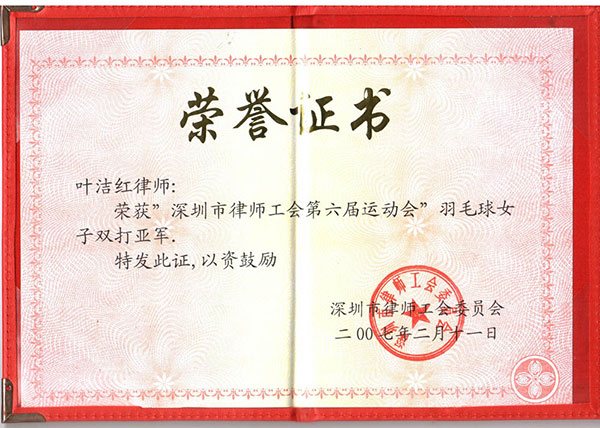 荣誉证书
叶洁红律师:
荣获"深圳市律师工会第六届运动会"羽毛球女
子双打亚军.
特发此证,以资鼓励
深圳市律师工会委员会
深圳市律师工会委员会
二00七年二月十一日